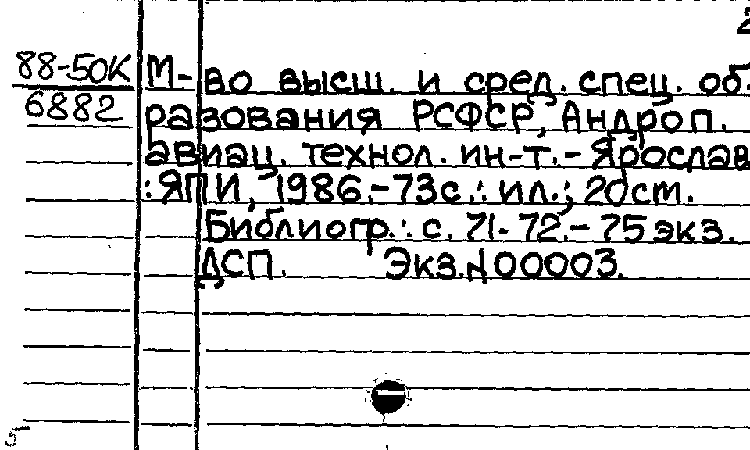 2
88-50К
6882
М-во высш. и сред. спец. об.
разования РСФСР, Андроп.
авиац. технол. ин-т.-Ярослав
: ЯПИ, 1986.-73с.: ил.; 20см.
Библиогр.: с. 71-72.-75экз.
ДСП. Экз.№00003.
5